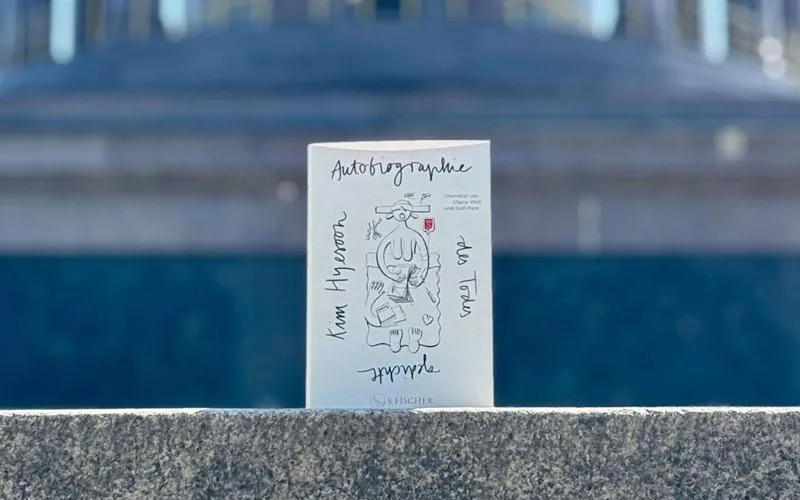 Autobiographie
des Todes
Kim Hyesoon
Übersetzt von
Uljana Wolf
und Sool Park
Gedichte
S. FISCHER